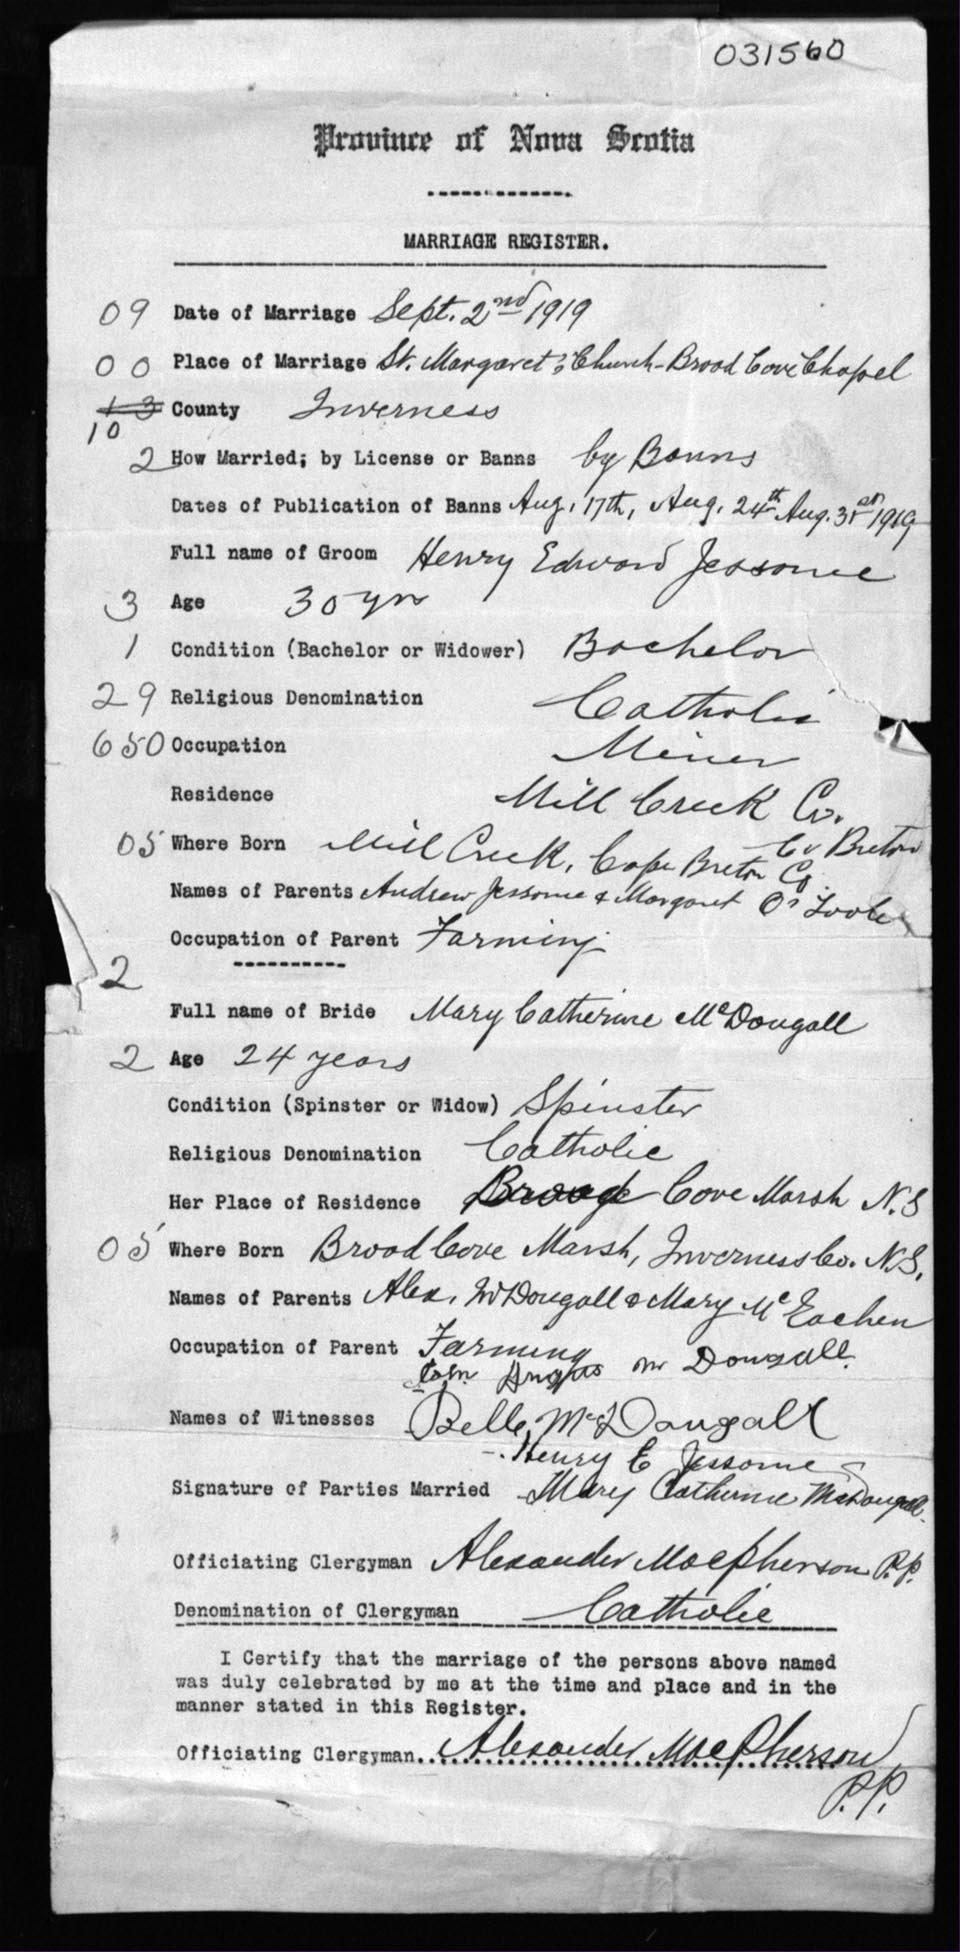 031560
Province of Nova Scotia
MARRIAGE REGISTER.
09 Date of Marriage Sept. 2nd 1919
00 Place of Marriage St. Margaret's Church - Broad Cove Chapel
13 County Inverness
10
2 How Married; by License or Banns by Banns
Dates of Publication of Banns Aug. 17th, Aug. 24th Aug. 31st 1919
Full name of Groom Henry Edward Jessome
3 Age 30 yrs
1 Condition (Bachelor or Widower) Bachelor
29 Religious Denomination Catholic
650 Occupation Miner
Residence Mill Creek Co.
C. Breton
05 Where Born Mill Creek, Cape Breton Co.
Names of Parents Andrew Jessome & Margaret O'Toole
Occupation of Parent Farming
2
Full name of Bride Mary Catherine McDougall
2 Age 24 years
Condition (Spinster or Widow) Spinster
Religious Denomination Catholic
Her Place of Residence Broad Cove Marsh N.S
05 Where Born Broad Cove Marsh, Inverness Co. N.S.
Names of Parents Alex. McDougall & Mary McEachen
Occupation of Parent Farming
Angus McDougall
Names of Witnesses Belle McDougall
Henry E Jessome
Signature of Parties Married Mary Catherine McDougall
Officiating Clergyman Alexander MacPherson P.P.
Denomination of Clergyman Catholic
I Certify that the marriage of the persons above named
was duly celebrated by me at the time and place and in the
manner stated in this Register.
Officiating Clergyman..Alexander MacPherson
P.P.